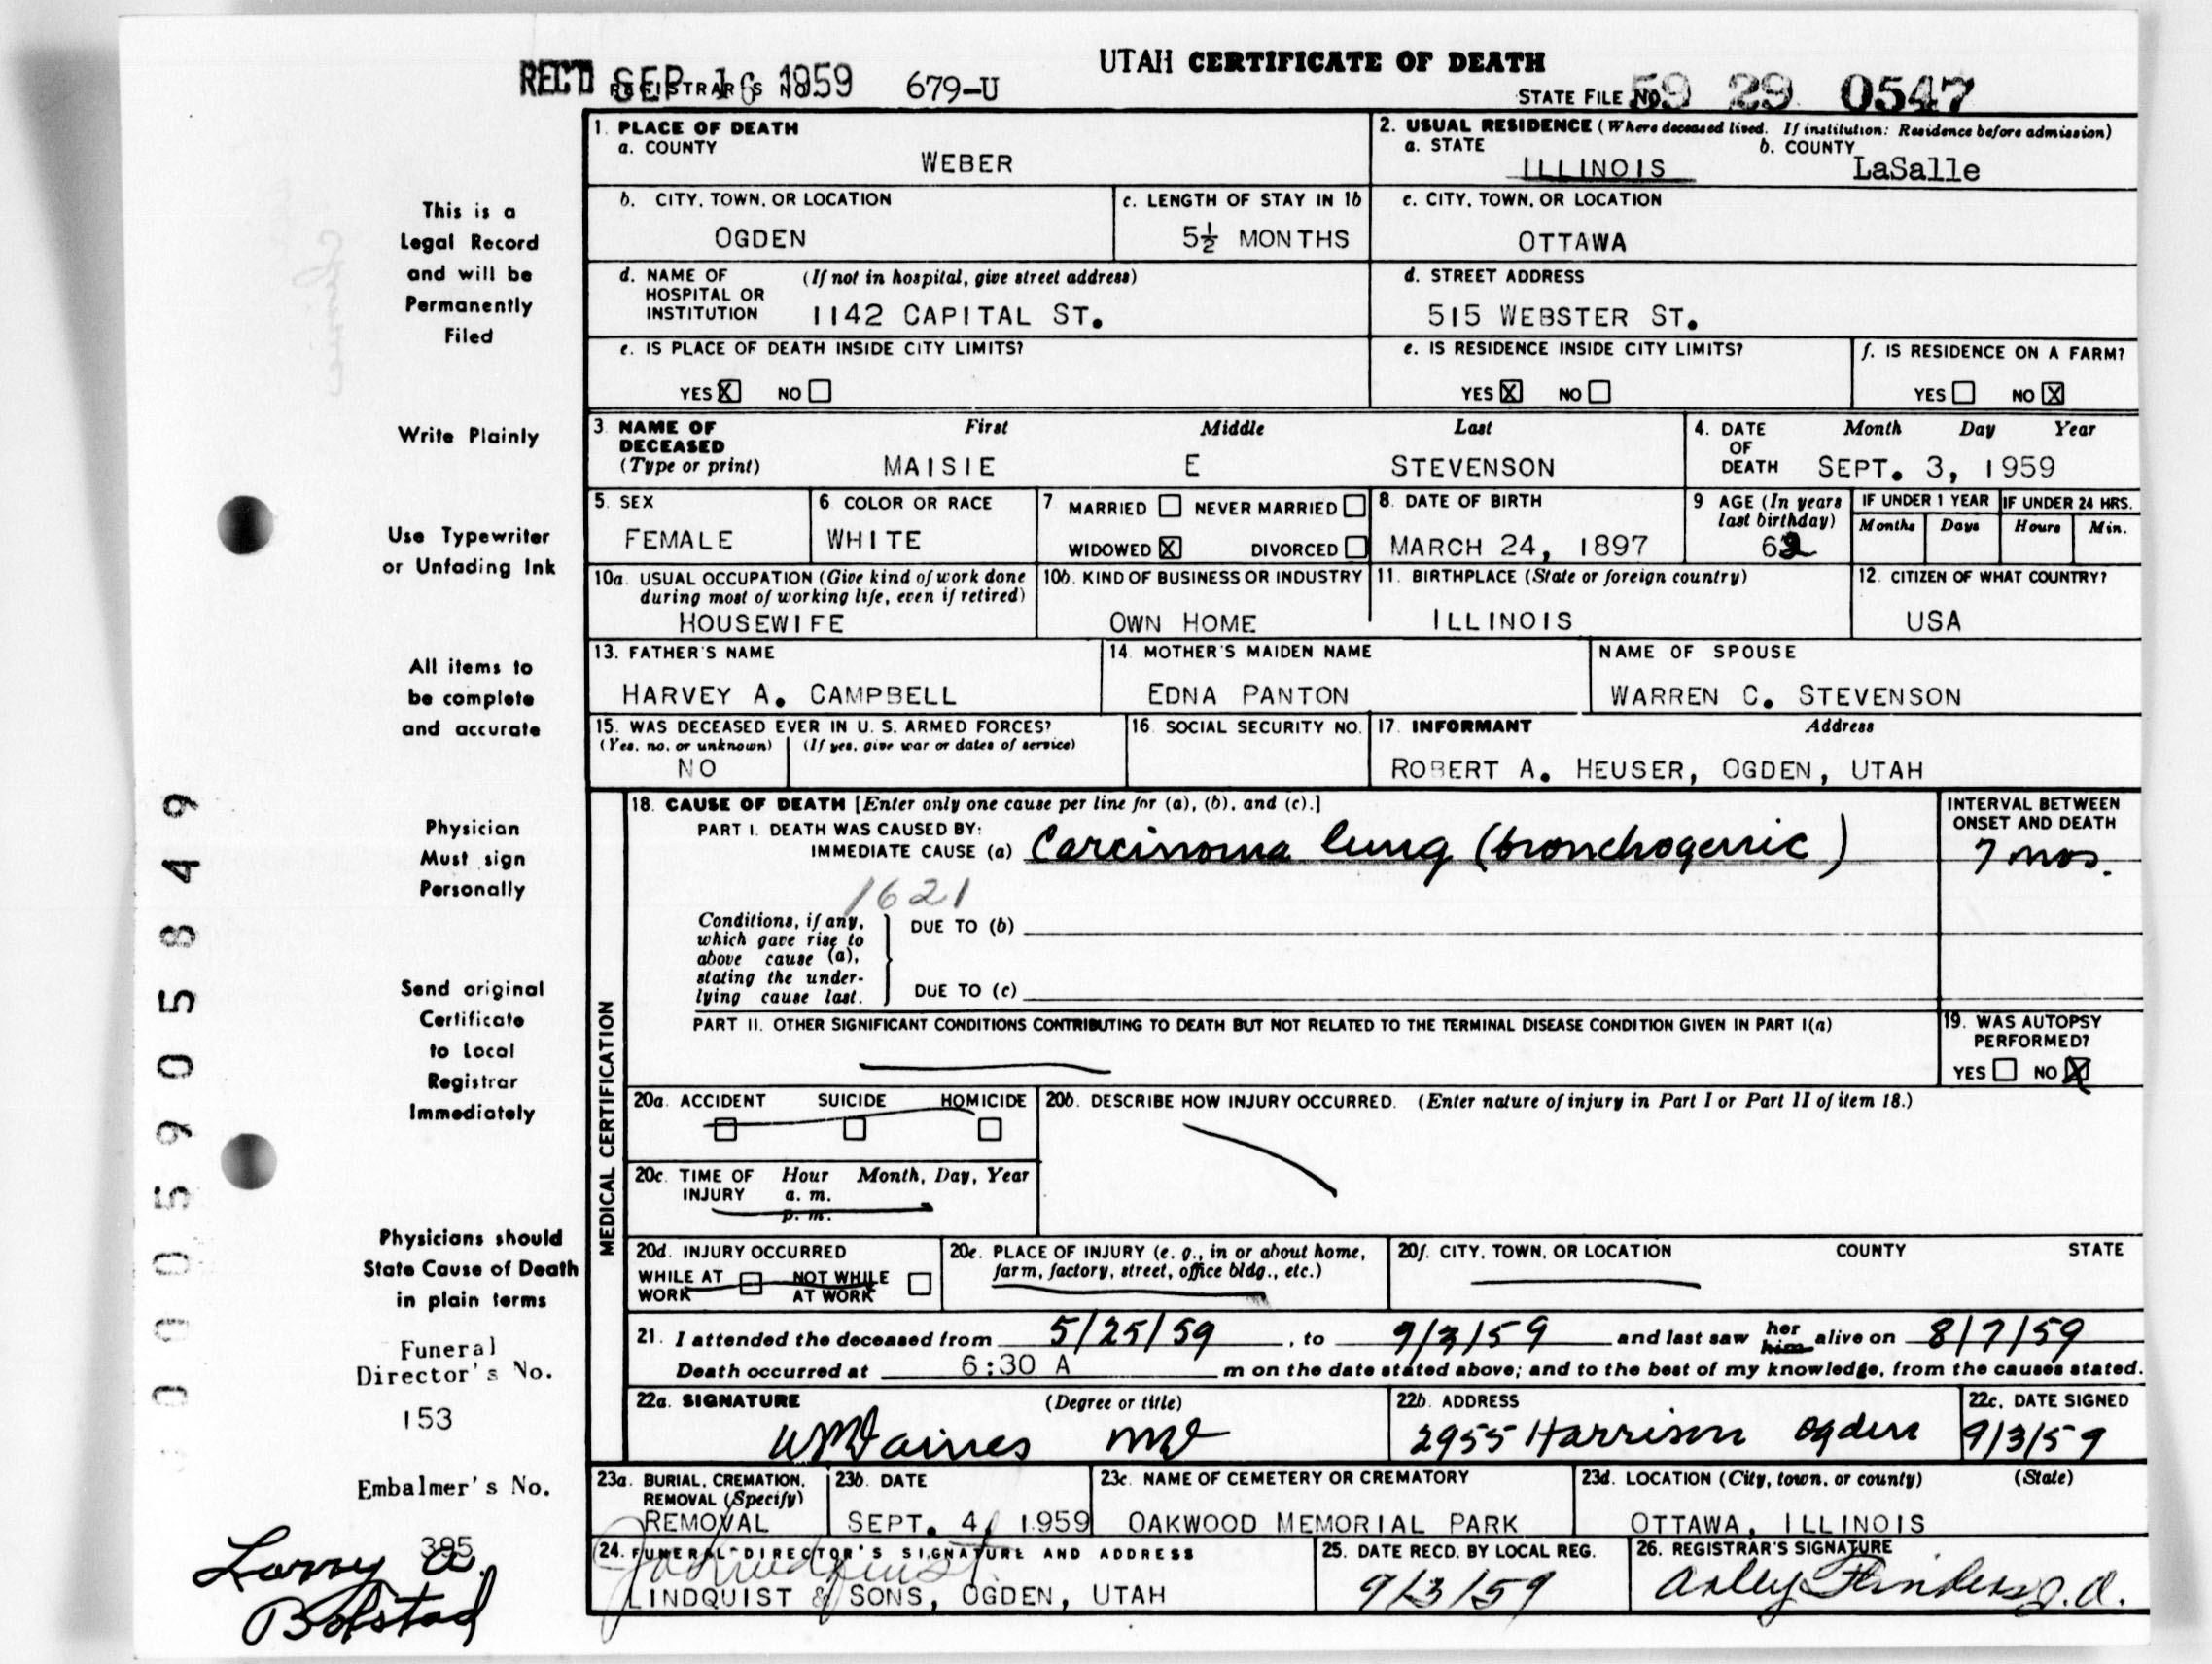 UTAH CERTIFICATE OF DEATH
REC'D SEP 16 1959 REGISTRAR'S NO. 679-U
STATE FILE NO. 59 29 0547
1. PLACE OF DEATH
a. COUNTY
WEBER
2. USUAL RESIDENCE (Where deceased lived. If institution: Residence before admission)
a. STATE b. COUNTY
ILLINOIS LaSalle
b. CITY, TOWN, OR LOCATION
OGDEN
c. LENGTH OF STAY IN 1b
5½ MONTHS
c. CITY, TOWN, OR LOCATION
OTTAWA
d. NAME OF HOSPITAL OR INSTITUTION (If not in hospital, give street address)
1142 CAPITAL ST.
d. STREET ADDRESS
515 WEBSTER ST.
e. IS PLACE OF DEATH INSIDE CITY LIMITS?
YES X NO
e. IS RESIDENCE INSIDE CITY LIMITS?
YES X NO
f. IS RESIDENCE ON A FARM?
YES NO X
3. NAME OF DECEASED (Type or print)
First Middle Last
MAISIE E STEVENSON
4. DATE OF DEATH Month Day Year
SEPT. 3, 1959
5. SEX
FEMALE
6. COLOR OR RACE
WHITE
7. MARRIED NEVER MARRIED
WIDOWED X DIVORCED
8. DATE OF BIRTH
MARCH 24, 1897
9. AGE (In years last birthday)
62
IF UNDER 1 YEAR IF UNDER 24 HRS.
Months Days Hours Min.
10a. USUAL OCCUPATION (Give kind of work done during most of working life, even if retired)
HOUSEWIFE
10b. KIND OF BUSINESS OR INDUSTRY
OWN HOME
11. BIRTHPLACE (State or foreign country)
ILLINOIS
12. CITIZEN OF WHAT COUNTRY?
USA
13. FATHER'S NAME
HARVEY A. CAMPBELL
14. MOTHER'S MAIDEN NAME
EDNA PANTON
NAME OF SPOUSE
WARREN C. STEVENSON
15. WAS DECEASED EVER IN U. S. ARMED FORCES?
(Yes, no, or unknown) (If yes, give war or dates of service)
NO
16. SOCIAL SECURITY NO.
17. INFORMANT Address
ROBERT A. HEUSER, OGDEN, UTAH
MEDICAL CERTIFICATION
18. CAUSE OF DEATH [Enter only one cause per line for (a), (b), and (c).]
PART I. DEATH WAS CAUSED BY:
IMMEDIATE CAUSE (a) Carcinoma lung (bronchogenic)
INTERVAL BETWEEN ONSET AND DEATH
7 mos.
1621
Conditions, if any, which gave rise to above cause (a), stating the underlying cause last.
DUE TO (b)
DUE TO (c)
PART II. OTHER SIGNIFICANT CONDITIONS CONTRIBUTING TO DEATH BUT NOT RELATED TO THE TERMINAL DISEASE CONDITION GIVEN IN PART I(a)
19. WAS AUTOPSY PERFORMED?
YES NO X
20a. ACCIDENT SUICIDE HOMICIDE
20b. DESCRIBE HOW INJURY OCCURRED. (Enter nature of injury in Part I or Part II of item 18.)
20c. TIME OF INJURY Hour Month, Day, Year
a. m.
p. m.
20d. INJURY OCCURRED
WHILE AT WORK NOT WHILE AT WORK
20e. PLACE OF INJURY (e. g., in or about home, farm, factory, street, office bldg., etc.)
20f. CITY, TOWN, OR LOCATION COUNTY STATE
21. I attended the deceased from 5/25/59, to 9/3/59 and last saw her him alive on 8/7/59
Death occurred at 6:30 A m on the date stated above; and to the best of my knowledge, from the causes stated.
22a. SIGNATURE (Degree or title)
WM Daines MD
22b. ADDRESS
2955 Harrison Ogden
22c. DATE SIGNED
9/3/59
23a. BURIAL, CREMATION, REMOVAL (Specify)
REMOVAL
23b. DATE
SEPT. 4, 1959
23c. NAME OF CEMETERY OR CREMATORY
OAKWOOD MEMORIAL PARK
23d. LOCATION (City, town, or county) (State)
OTTAWA, ILLINOIS
24. FUNERAL DIRECTOR'S SIGNATURE AND ADDRESS
LINDQUIST & SONS, OGDEN, UTAH
25. DATE RECD. BY LOCAL REG.
9/3/59
26. REGISTRAR'S SIGNATURE
This is a
Legal Record
and will be
Permanently
Filed
Write Plainly
Use Typewriter
or Unfading Ink
All items to
be complete
and accurate
Physician
Must sign
Personally
Send original
Certificate
to Local
Registrar
Immediately
Physicians should
State Cause of Death
in plain terms
Funeral
Director's No.
153
Embalmer's No.
395
Larry A.
Bolstad
0005905849